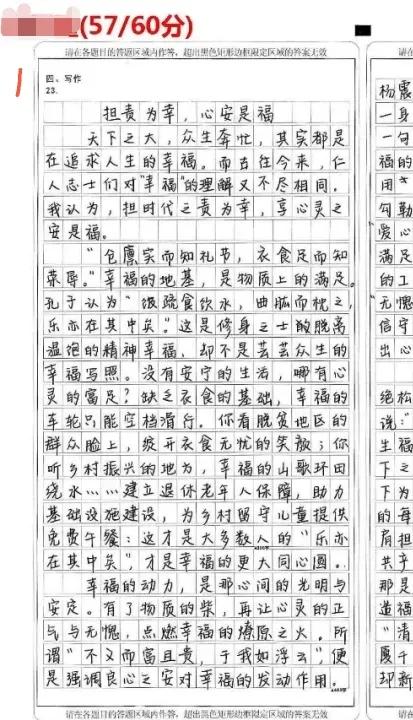 (57/60分)
请在各题目的答题区域内作答，超出黑色矩形边框限定区域的答案无效
1
四、写作
23.
担责为幸，心安是福
天下之大，众生奔忙，其实都是
在追求人生的幸福。而古往今来，仁
人志士们对"幸福"的理解又不尽相同。
我认为，担时代之责为幸，享心灵之
安是福。
"仓廪实而知礼节，衣食足而知
荣辱。"幸福的地基，是物质上的满足。
孔子认为"饭疏食饮水，曲肱而枕之，
乐亦在其中矣。"这是修身之士的脱离
温饱的精神幸福，却不是芸芸众生的
幸福写照。没有安宁的生活，哪有心
灵的富足？缺乏衣食的基础，幸福的
车轮只能空档滑行。你看脱贫地区的
群众脸上，绽开衣食无忧的笑颜；你
听乡村振兴的地方，幸福的山歌环田
绕水……建立退休老年人保障，助力
基础设施建设，为乡村留守儿童提供
免费午餐：这才是大多数人的"乐亦
在其中矣"，才是幸福的更大同心圆。
幸福的动力，是那心间的光明与
安定。有了物质的柴，再让心灵的正
气与无愧，点燃幸福的燎原之火。所
谓"不义而富且贵，于我如浮云"，便
是强调良心之安对幸福的发动作用。
请在各题目的答题区域内作答，超出黑色矩形边框限定区域的答案无效
请在
杨震
一身
一句
福的
用
勾勒
爱心
满足
的工
"无愧
信守
出心
绝松
说："
生福
下之
下为
的每
肩担
共享
那是
造福
"清
厦千
却新
请在